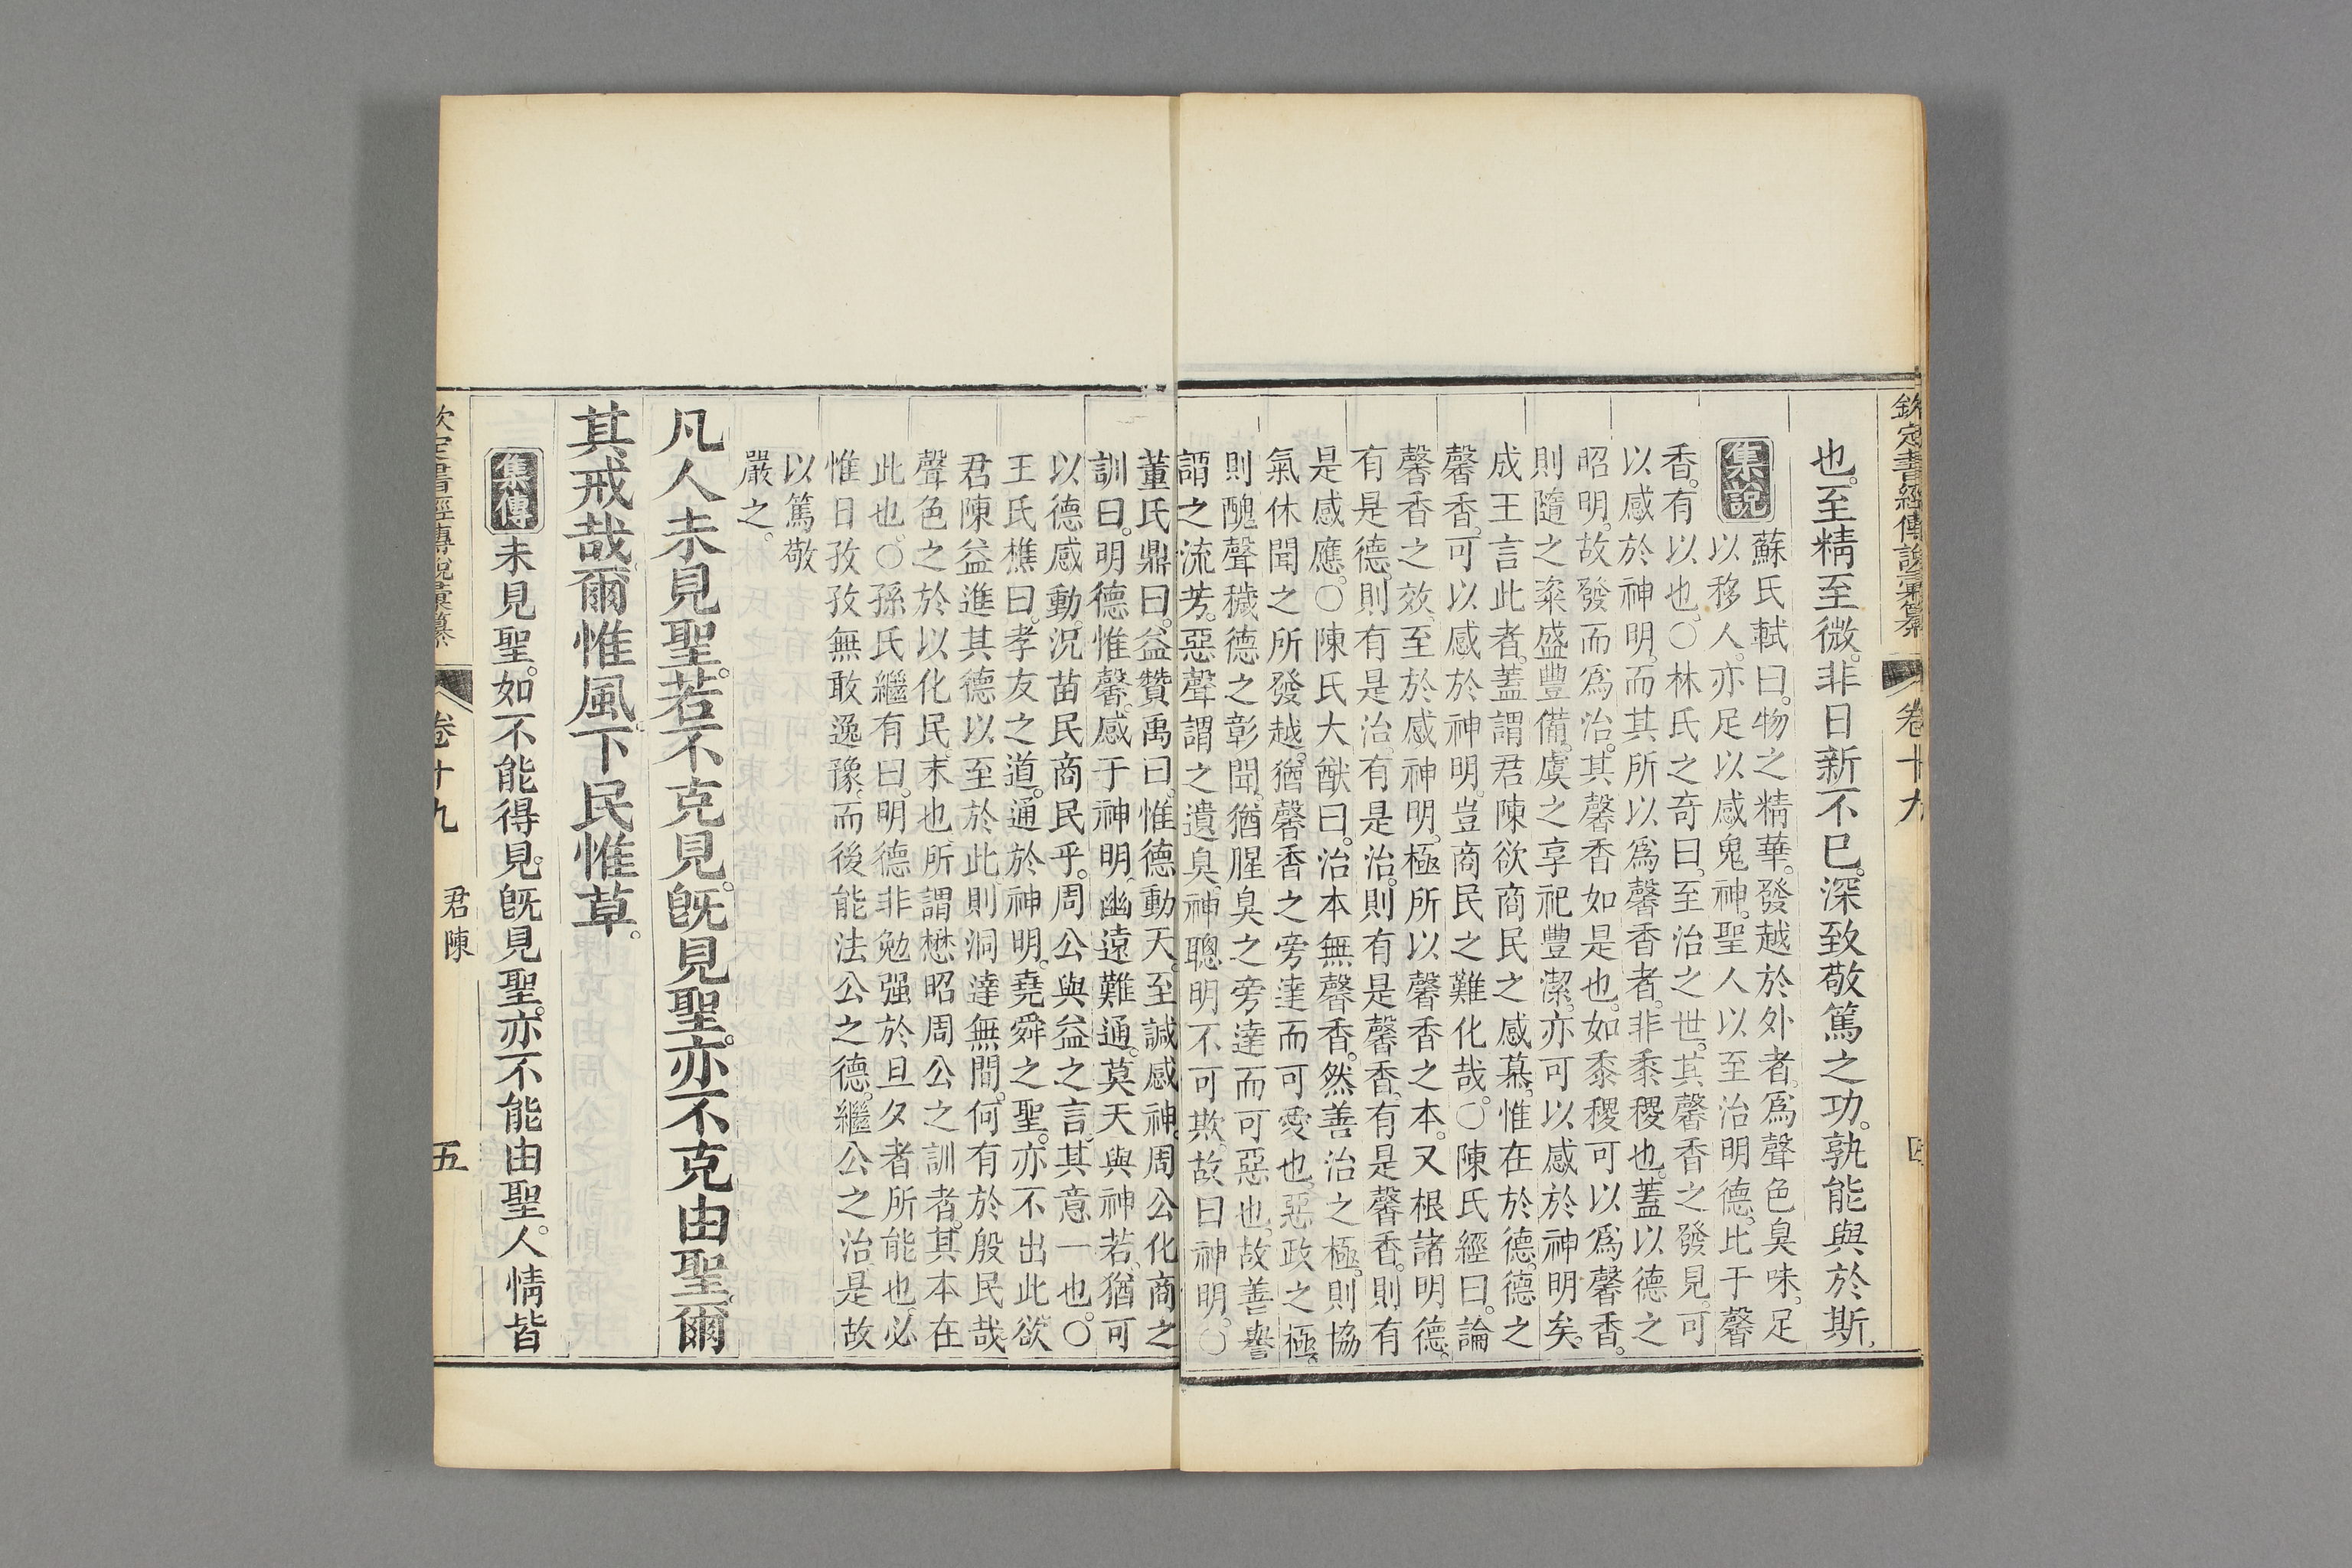 欽定書經傳說彙纂 卷十九 四
也。至精至微。非日新不已。深致敬篤之功。孰能與於斯。
集說
蘇氏軾曰。物之精華。發越於外者。爲聲色臭味。足
以移人。亦足以感鬼神。聖人以至治明德。比于馨
香。有以也。○林氏之奇曰。至治之世。其馨香之發見。可
以感於神明。而其所以爲馨香者。非黍稷也。蓋以德之
昭明。故發而爲治。其馨香如是也。如黍稷可以爲馨香。
則隨之粢盛豐備。虞之享祀豐潔。亦可以感於神明矣。
成王言此者。蓋謂君陳欲商民之感慕。惟在於德。德之
馨香。可以感於神明。豈商民之難化哉。○陳氏經曰。論
馨香之效。至於感神明。極所以馨香之本。又根諸明德。
有是德。則有是治。有是治。則有是馨香。有是馨香。則有
是感應。○陳氏大猷曰。治本無馨香。然善治之極。則協
氣休聞之所發越。猶馨香之旁達而可愛也。惡政之極。
則醜聲穢德之彰聞。猶腥臭之旁達而可惡也。故善譽
謂之流芳。惡聲謂之遺臭。神聰明不可欺。故曰神明。○
董氏鼎曰。益贊禹曰。惟德動天。至諴感神。周公化商之
訓曰。明德惟馨。感于神明。幽遠難通。莫天與神若。猶可
以德感動。況苗民商民乎。周公與益之言。其意一也。○
王氏樵曰。孝友之道。通於神明。堯舜之聖。亦不出此。欲
君陳益進其德以至於此。則洞達無間。何有於殷民哉。
聲色之於以化民末也。所謂懋昭周公之訓者。其本在
此也。○孫氏繼有曰。明德非勉强於旦夕者所能也。必
惟日孜孜無敢逸豫。而後能法公之德。繼公之治。是故
以篤敬
嚴之。
凡人未見聖。若不克見。旣見聖。亦不克由聖。爾
其戒哉。爾惟風。下民惟草。
集傳
未見聖。如不能得見。旣見聖。亦不能由聖。人情皆
欽定書經傳說彙纂 卷十九 君陳 五